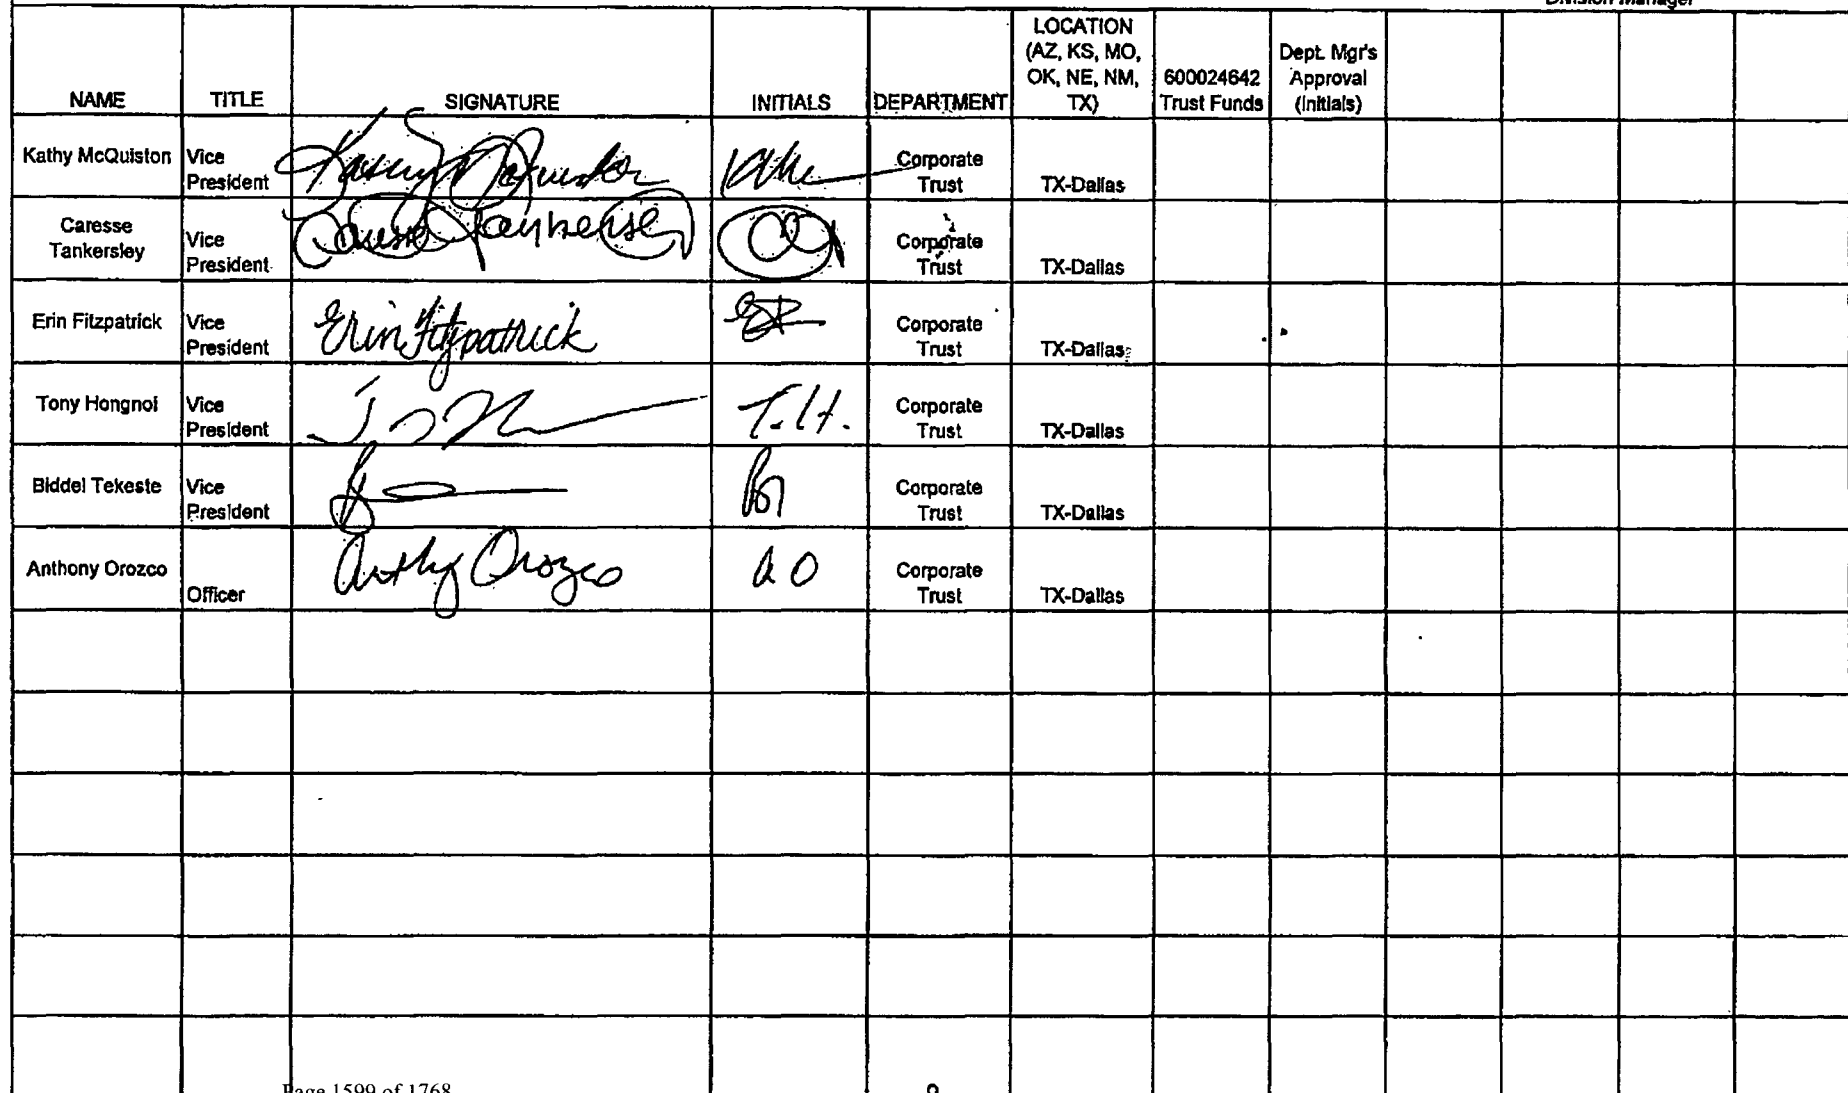 Division Manager
NAME TITLE SIGNATURE INITIALS DEPARTMENT LOCATION (AZ, KS, MO, OK, NE, NM, TX) 600024642 Trust Funds Dept. Mgr's Approval (Initials)
Kathy McQuiston Vice President Corporate Trust TX-Dallas
Caresse Tankersley Vice President Corporate Trust TX-Dallas
Erin Fitzpatrick Vice President Erin Fitzpatrick EF Corporate Trust TX-Dallas
Tony Hongnoi Vice President T.H. Corporate Trust TX-Dallas
Biddel Tekeste Vice President Corporate Trust TX-Dallas
Anthony Orozco Officer Anthony Orozco AO Corporate Trust TX-Dallas
Page 1599 of 1768